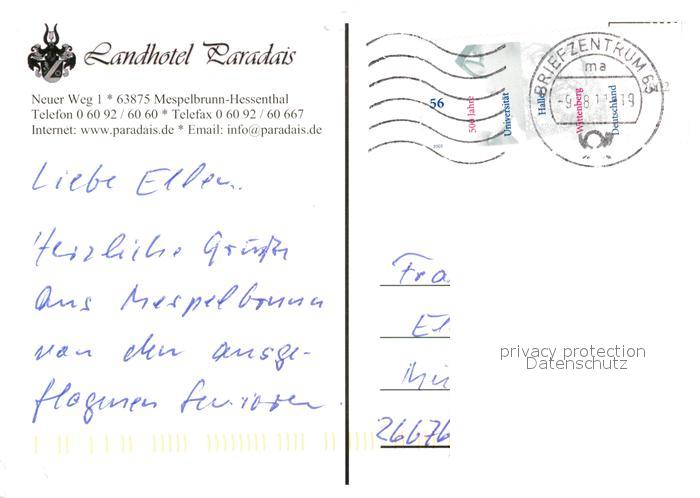 Landhotel Paradais
Neuer Weg 1 * 63875 Mespelbrunn-Hessenthal
Telefon 0 60 92 / 60 60 * Telefax 0 60 92 / 60 667
Internet: www.paradais.de * Email: info@paradais.de
Liebe Ellen.
Herzliche Grüße
aus Mespelbrunn
von den ausge-
flogenen Senioren.
56
500 Jahre
Universität
Halle
Wittenberg
Deutschland
BRIEFZENTRUM 63
ma
19
Fra
El
26676
privacy protection
Datenschutz